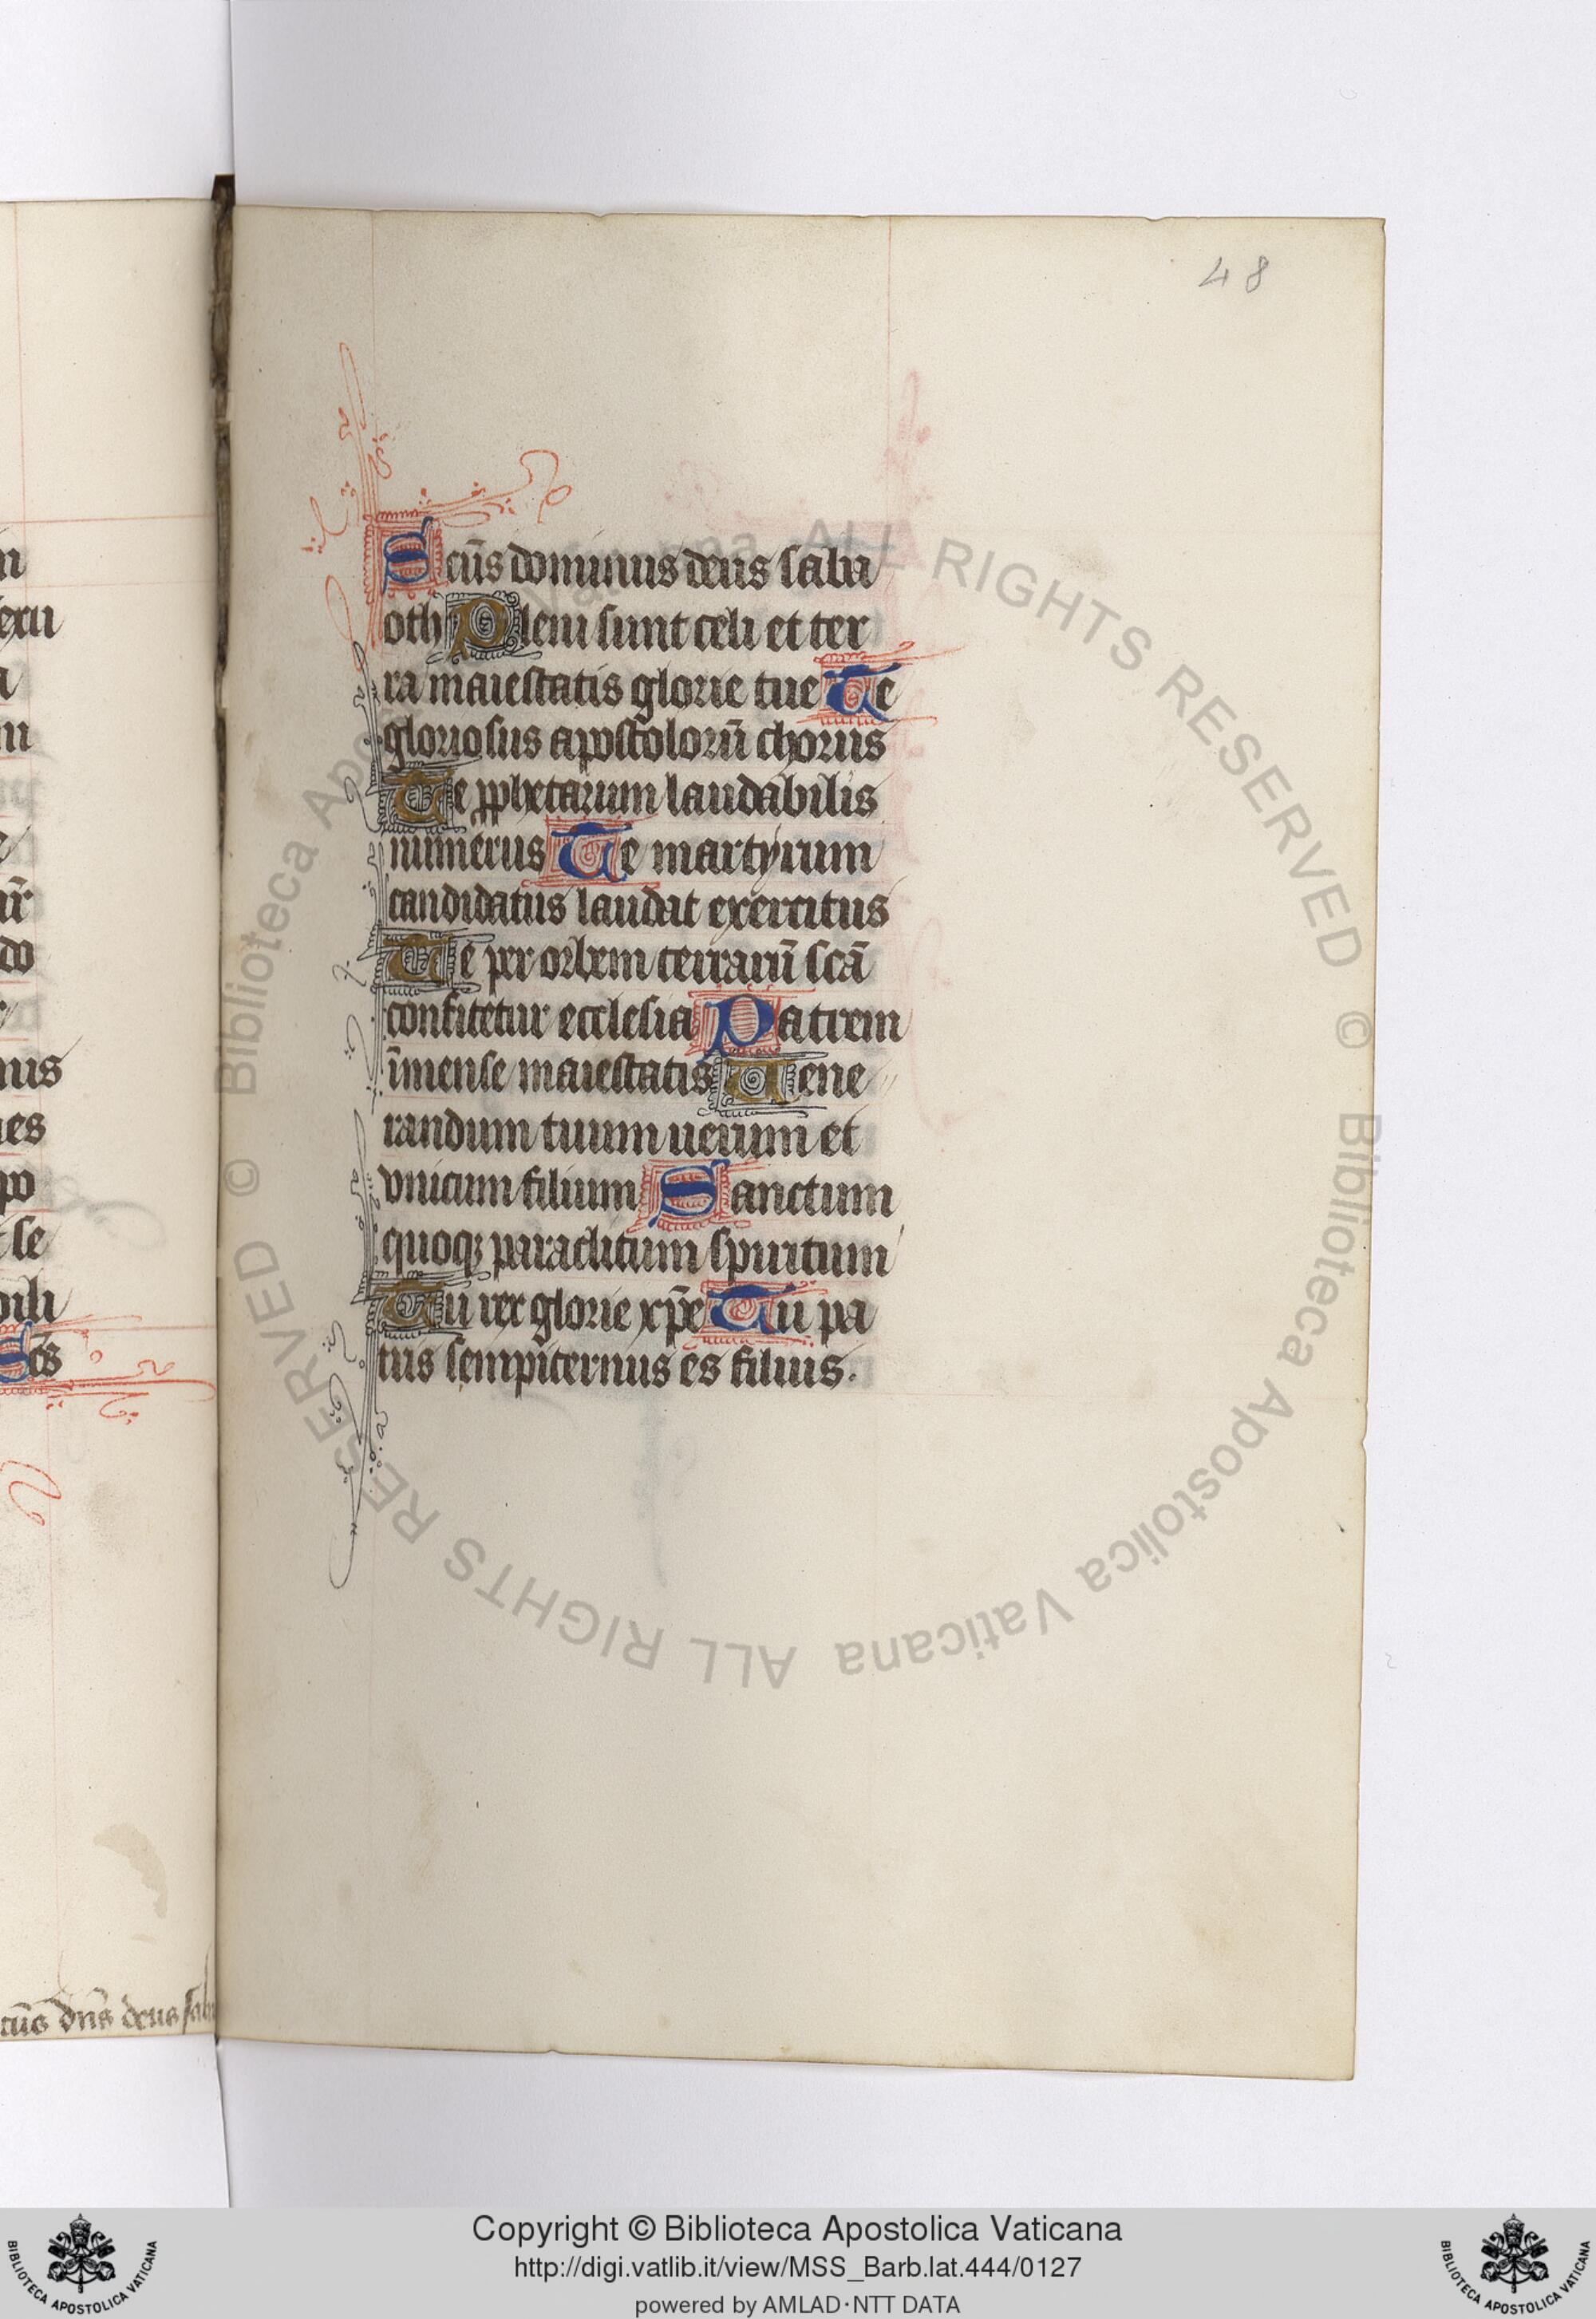 48
Scũs dominus deus saba
oth Pleni sunt celi et ter
ra maiestatis glorie tue Te
gloriosus apostolorũ chorus
Te pphetarum laudabilis
numerus Te martyrum
candidatus laudat exercitus
Te per orbem terrarũ scã
confitetur ecclesia Patrem
ĩmense maiestatis Uene
randum tuum uerum et
vnicum filium Sanctum
quoqꝫ paraclitum spiritum
Tu rex glorie xp̃e Tu pa
tris sempiternus es filius.
exu
nus
se
bili
Sc̃s
cũs dñs deus sab
© Biblioteca Apostolica Vaticana ALL RIGHTS RESERVED © Biblioteca Apostolica Vaticana ALL RIGHTS RESERVED
Copyright © Biblioteca Apostolica Vaticana
http://digi.vatlib.it/view/MSS_Barb.lat.444/0127
powered by AMLAD·NTT DATA
BIBLIOTECA APOSTOLICA VATICANA
BIBLIOTECA APOSTOLICA VATICANA